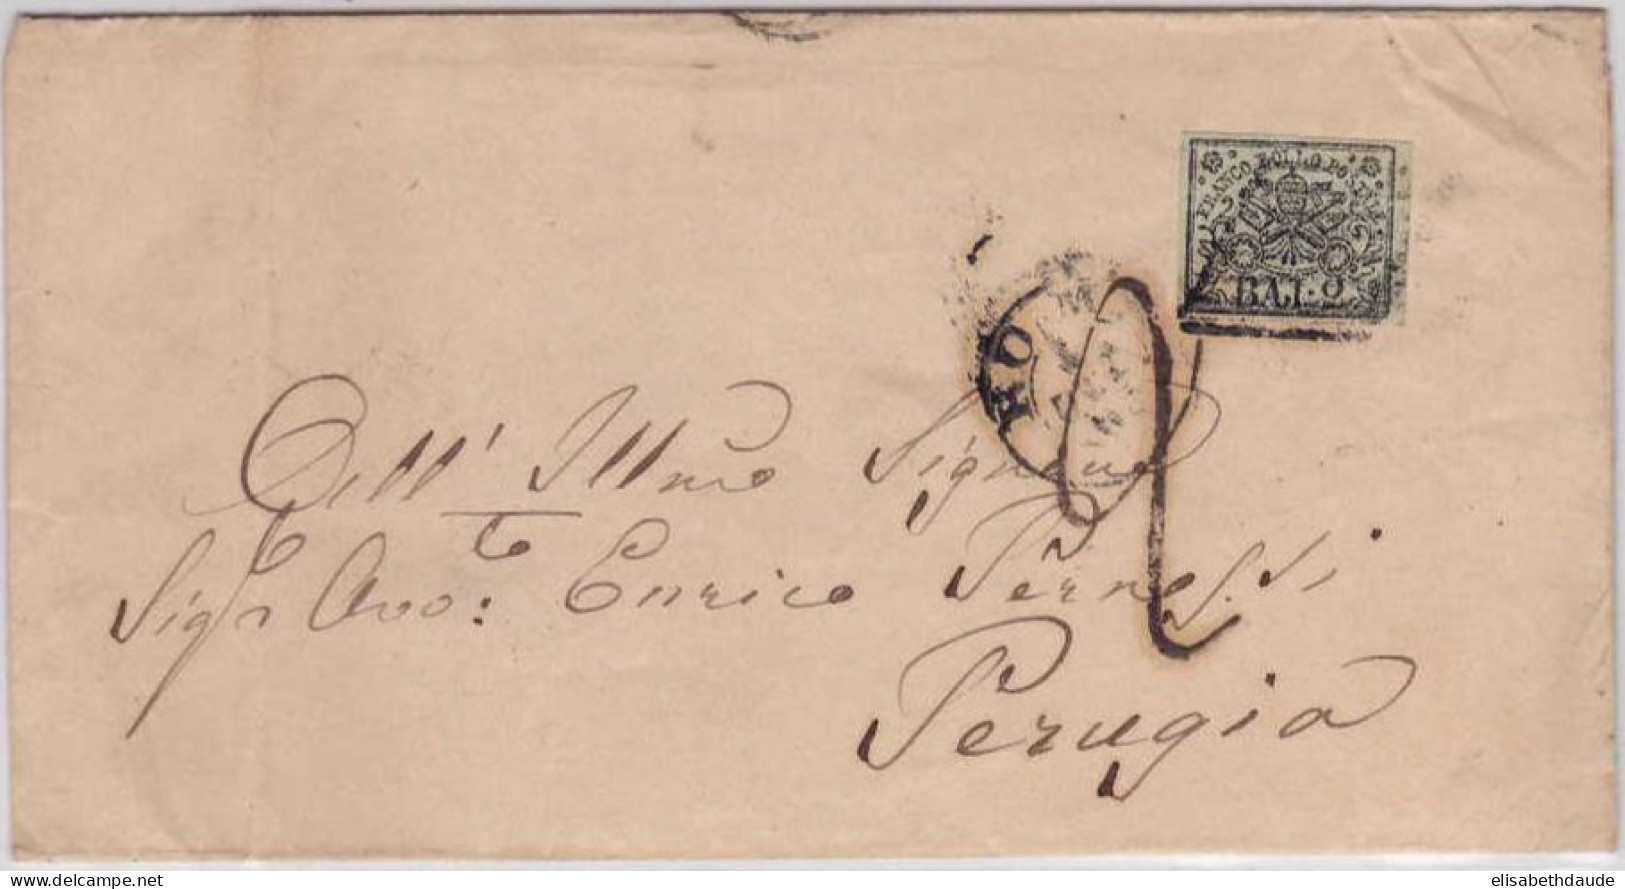 FRANCO BOLLO POSTALE
BAJ. 2
RO
2
Dell' Illmo Signore
Sigr Avv: to Enrico
Perugia
delcampe.net
elisabethdaude